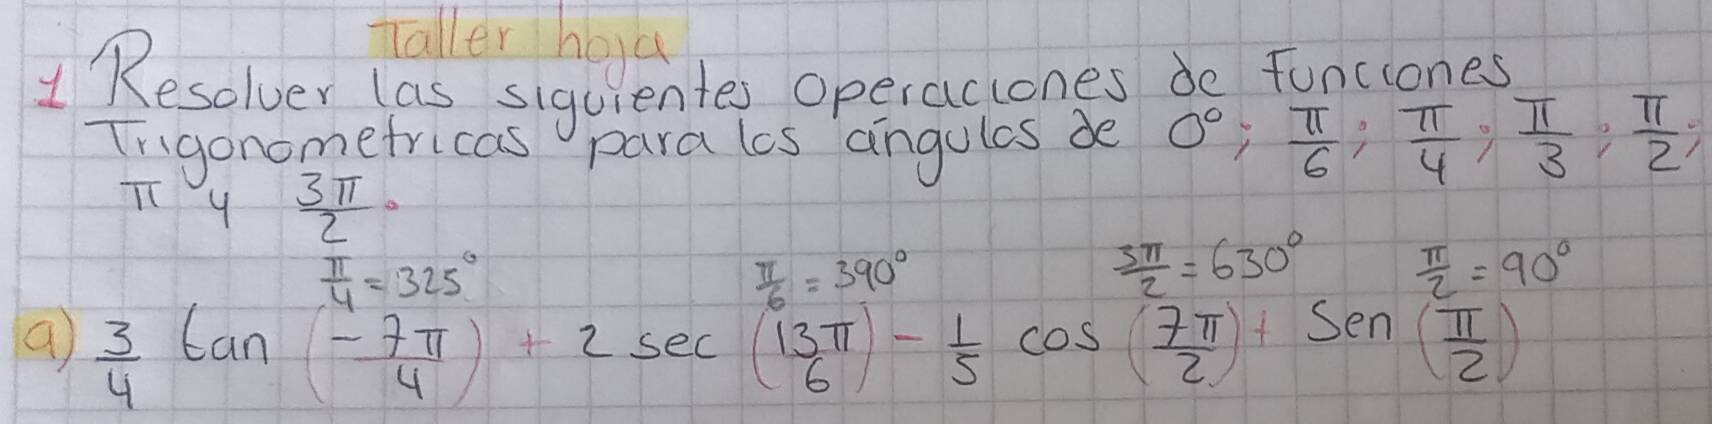 Taller hoja
1 Resolver las siguientes operaciones de funciones
Trigonometricas para los ángulos de 0°; π/6; π/4; π/3; π/2;
π y 3π/2.
π/4 = 325° π/6 = 390° 3π/2 = 630° π/2 = 90°
a) 3/4 tan (-7π/4) + 2 sec (13π/6) - 1/5 cos (7π/2) + Sen (π/2)